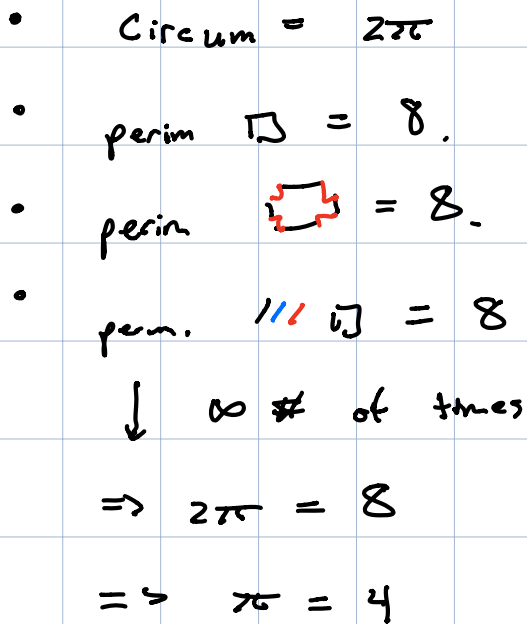 • Circum = 2π
• perim □ = 8.
• perim = 8.
• perm. /// □ = 8
↓ ∞ # of times
=> 2π = 8
=> π = 4